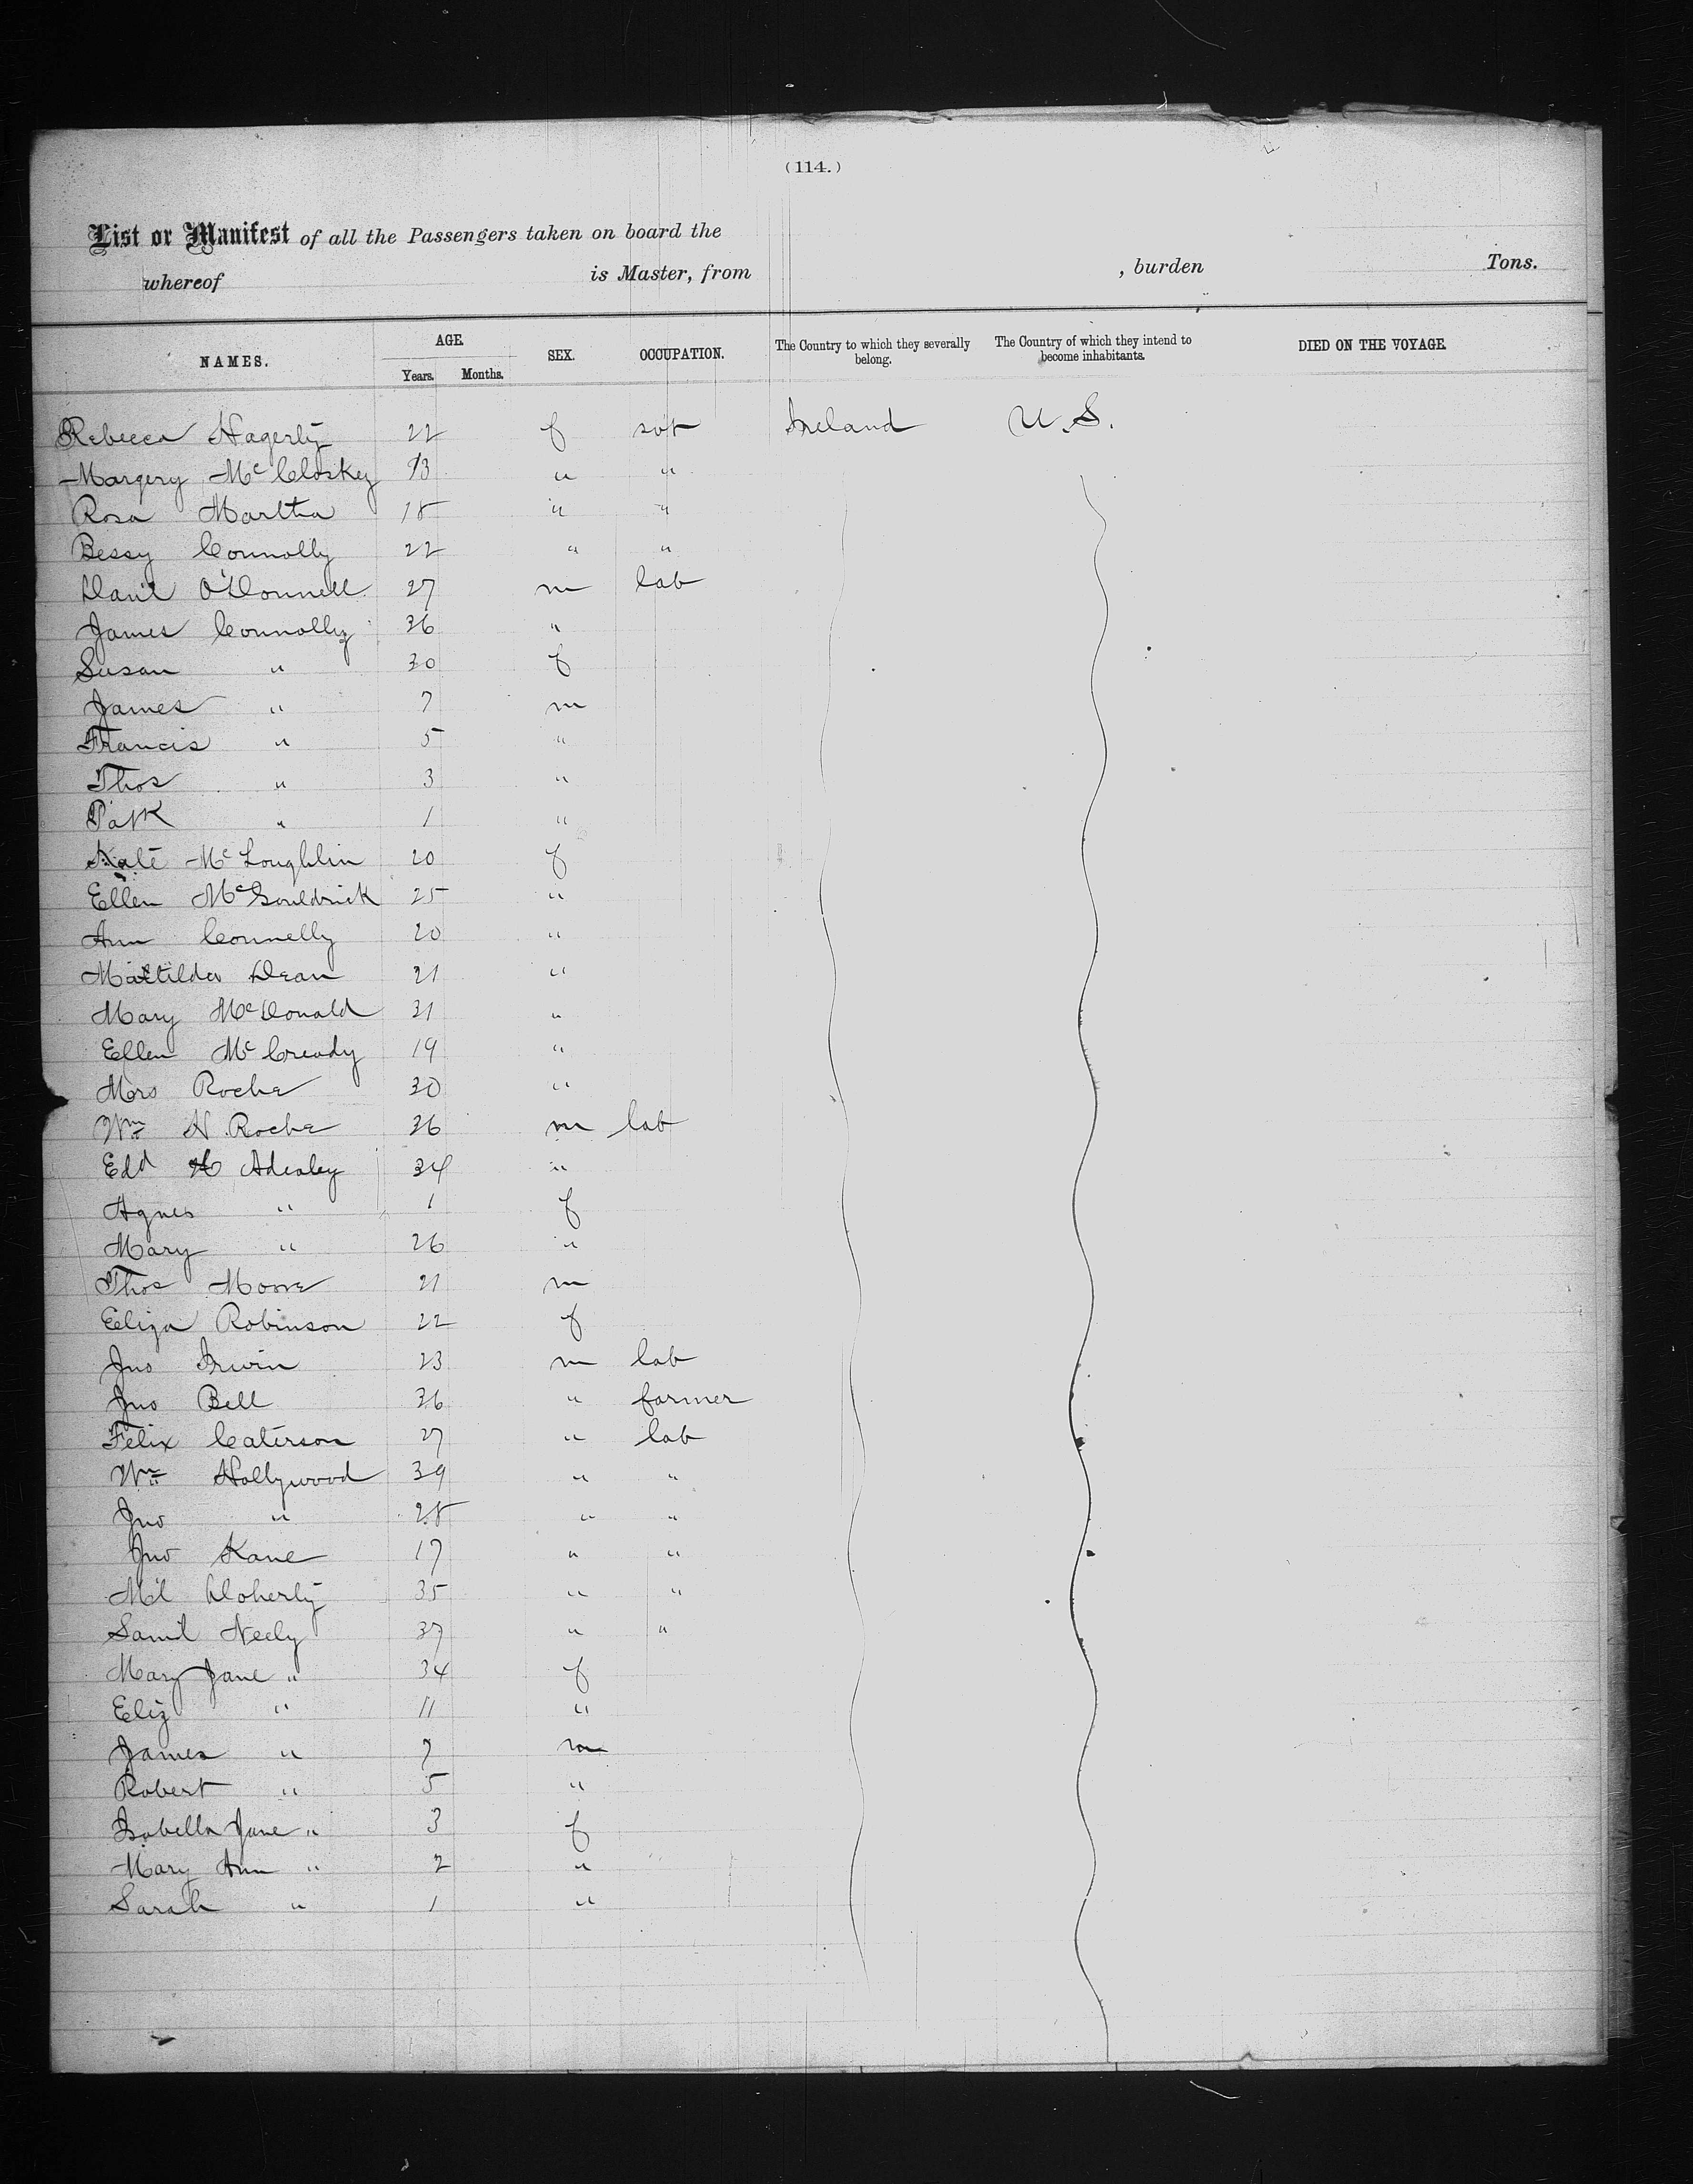 (114.)
List or Manifest of all the Passengers taken on board the
whereof is Master, from , burden Tons.
NAMES. AGE. Years. Months. SEX. OCCUPATION. The Country to which they severally belong. The Country of which they intend to become inhabitants. DIED ON THE VOYAGE.
Rebecca Hagerty 22 f Ireland U.S.
Margery McCloskey 13 " "
Rosa Martha 18 " "
Bessy Connolly 22 " "
Danl O'Donnell 27 m lab
James Connolly 36 "
Susan " 30 f
James " 7 m
Francis " 5 "
Thos " 3 "
Patk " 1 "
Kate McLoughlin 20 f
Ellen McGouldrick 25 "
Ann Connelly 20 "
Matilda Dean 21 "
Mary McDonald 31 "
Ellen McCready 19 "
Mrs Roche 30 "
Wm H Roche 36 m lab
Edd 34 "
Agnes " 1 f
Mary " 26 "
Thos Moore 21 m
Eliza Robinson 22 f
Jno Irwin 23 m lab
Jno Bell 36 " farmer
Felix Caterson 27 " lab
Wm Hollywood 39 " "
Jno " 28 " "
Jno Kane 17 " "
Ml Doherty 35 " "
Saml Neely 37 " "
Mary Jane " 34 f
Eliz " 11 "
James " 7 m
Robert " 5 "
Isabella Jane " 3 f
Mary Ann " 2 "
Sarah " 1 "